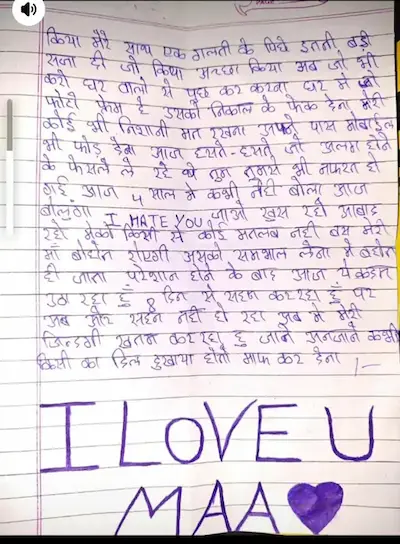 किया मेरे साथ एक गलती के पिछे इतनी बड़ी
सजा दी जो किया अच्छा किया अब जो भी
करो घर वालो से पूछ कर करना घर मे जो
फोटो फ्रेम है उसको निकाल के फेक देना मेरी
कोई भी निशानी मत रखना अपने पास मोबाईल
भी फोड़ देना आज हसते-हसते जो अलग होने
के फेसले ले रहे थे तुम तुमसे भी नफरत हो
गई आज 4 साल मे कभी नही बोला आज
बोलुंगा I HATE YOU जाओ खुस रहो आबाद
रहो मुझको किसी से कोई मतलब नही बस मेरी
माँ बोहोत रोएगी उसको समभाल लेना मे बहोत
ही जादा परेशान होने के बाद आज ये कदम
उठा रहा हुँ 8 दिन से सहन कर रहा हुँ पर
अब और सहन नही हो रहा अब मे मेरी
जिन्दगी खतम कर रहा हु जाने अनजाने कभी
किसी का दिल दुखाया होतो माफ कर देना
I LOVE U
MAA